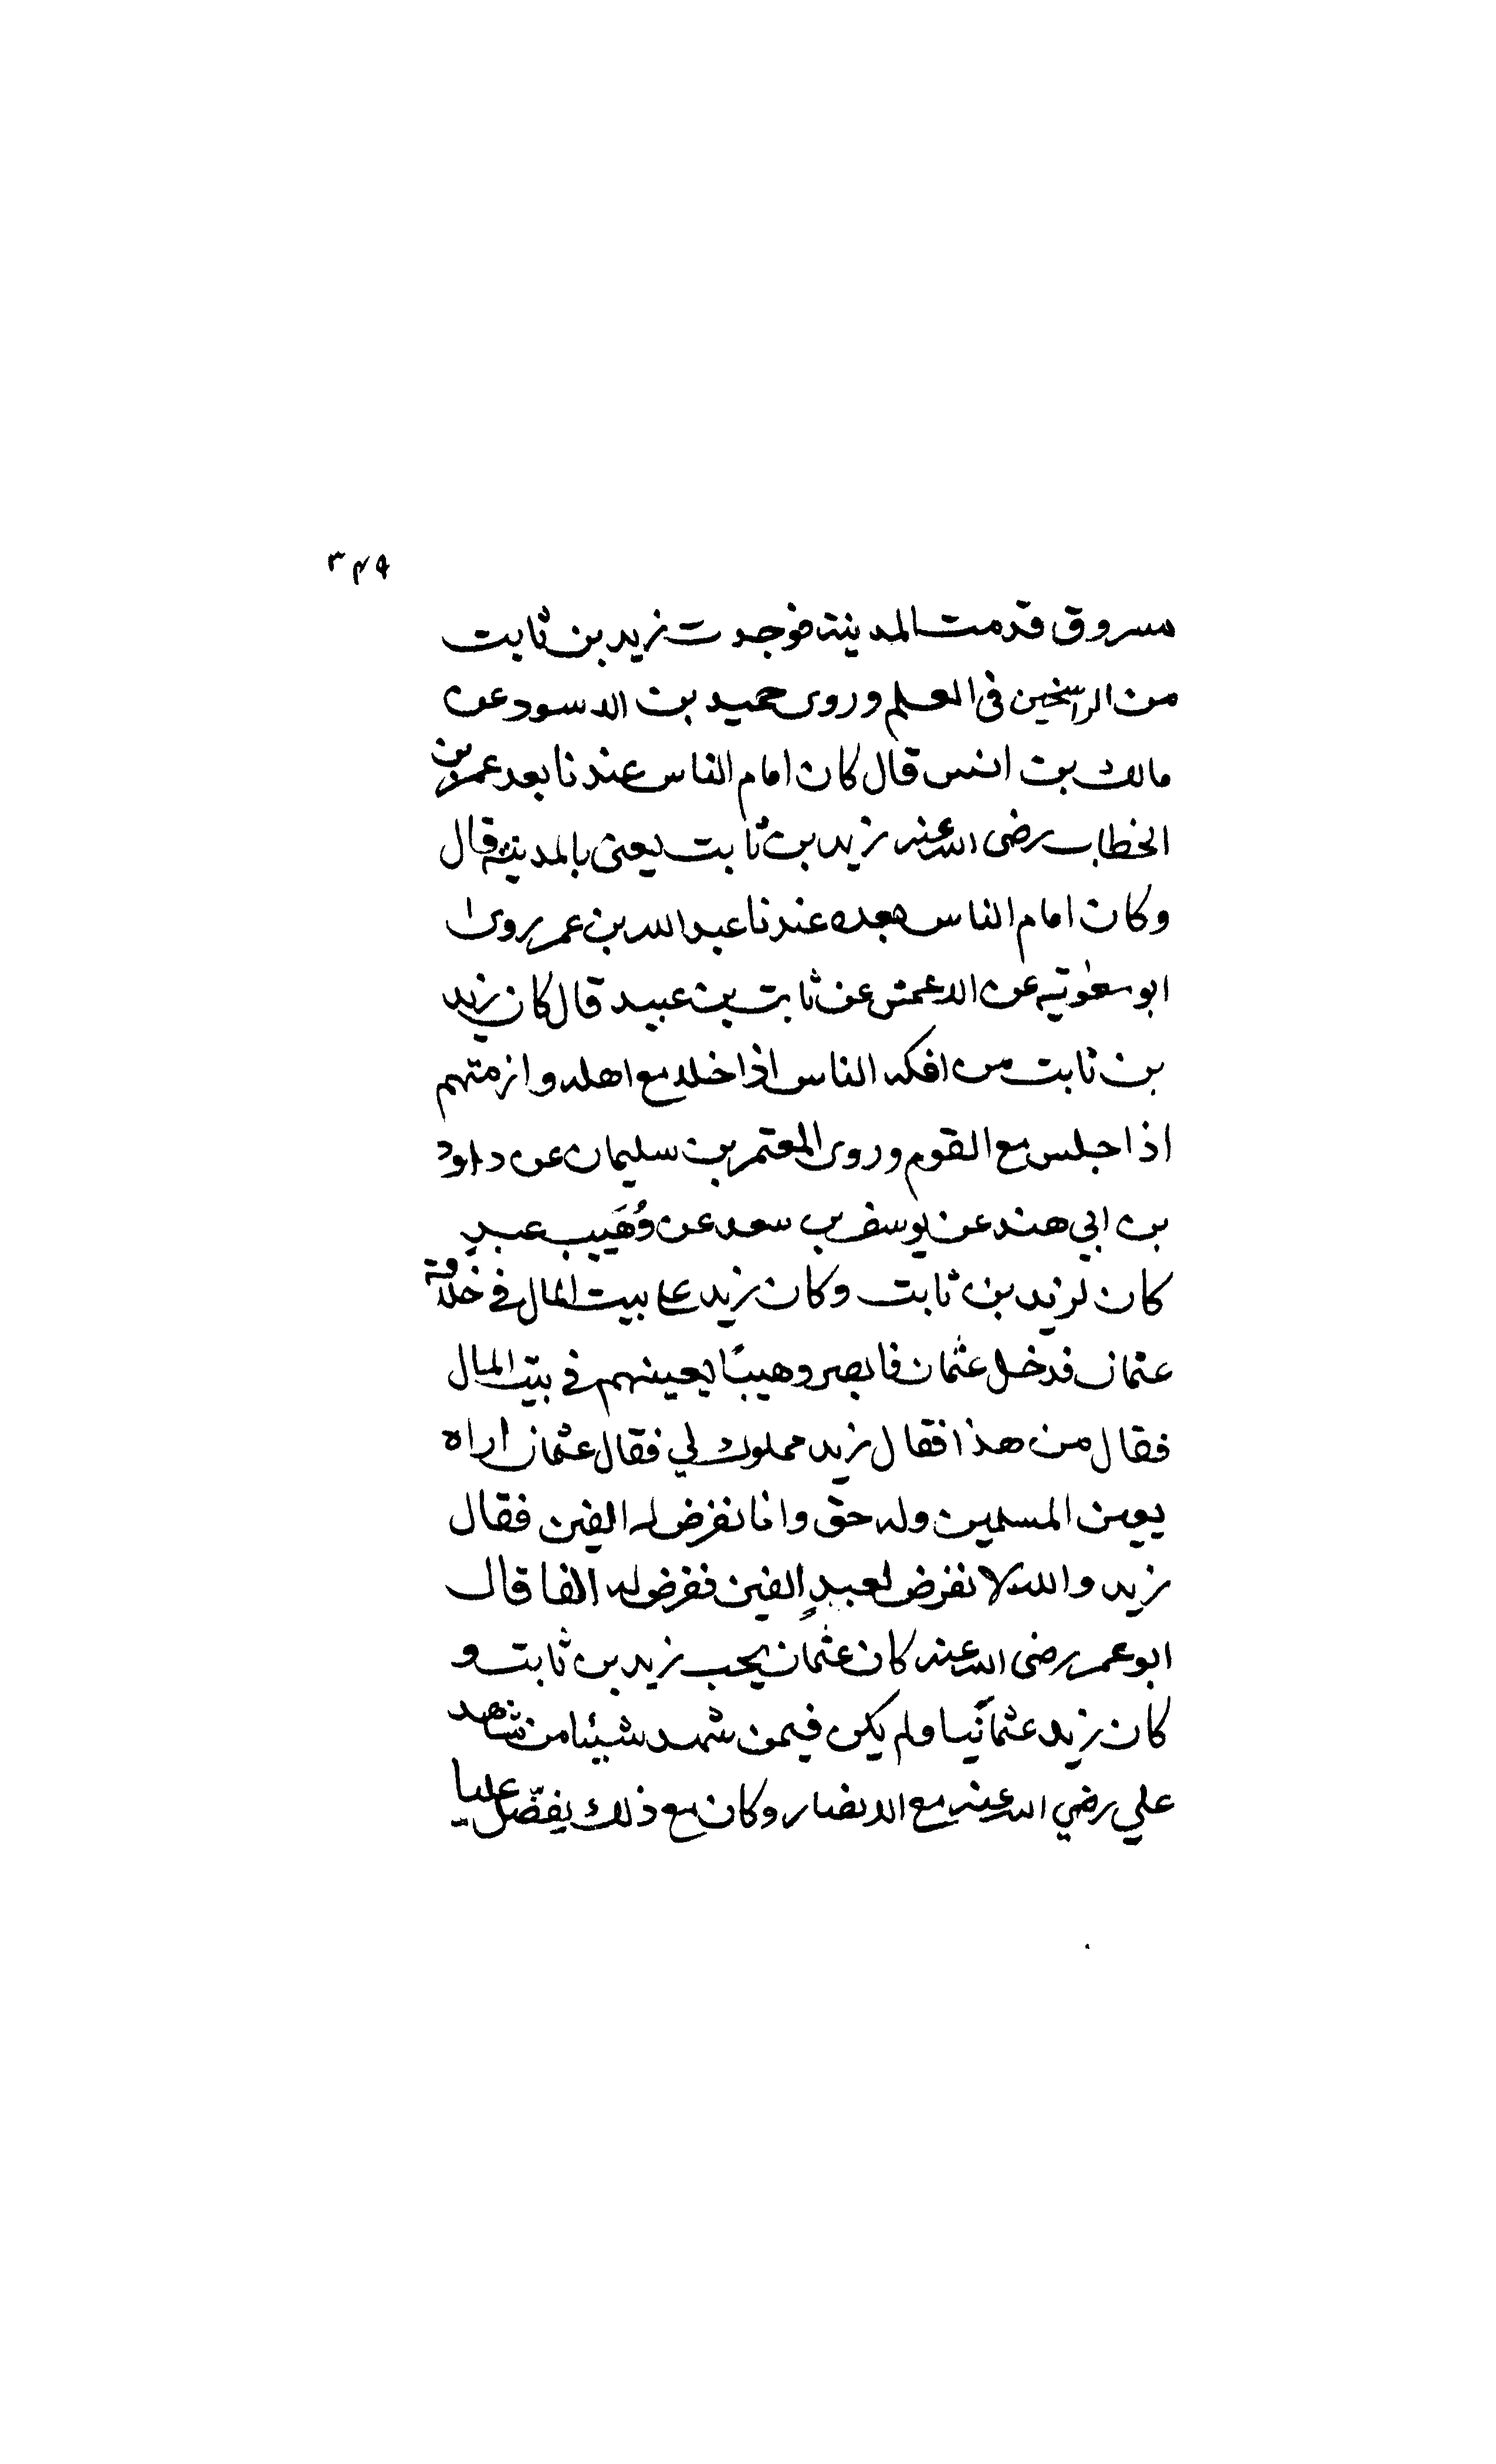 ٣٤٩
مسروق قدمت المدينة فوجدت زيد بن ثابت
من الراسخين في العلم وروى حميد بن الاسود عن
مالك بن انس قال كان امام الناس عندنا بعد عمر بن
الخطاب رضى الله عنه زيد بن ثابت يعنى بالمدينة قال
وكان امام الناس بعده عندنا عبد الله بن عمر روى
ابو معٰوية عن الاعمش عن ثابت بن عبيد قال كان زيد
بن ثابت من افكه الناس اذا خلا مع اهله وازمتهم
اذا جلس مع القوم وروى المعتمر بن سليمان عن داود
بن ابي هند عن يوسف بن سعد عن وُهَيب عبدٍ
كان لزيد بن ثابت وكان زيد على بيت المال في خلافة
عثمان فدخل عثمان فابصر وهيبًا يعينهم في بيت المال
فقال من هذا فقال زيد مملوك لي فقال عثمان اراه
يعين المسلمين وله حق وانا نفرض له الفين فقال
زيد والله لا نفرض لعبدٍ الفين ففرض له الفا قال
ابو عمر رضى الله عنه كان عثمان يحب زيد بن ثابت و
كان زيد عثمانيًا ولم يكن فيمن شهد شيئا من مشاهد
علي رضي الله عنه مع الانصار وكان مع ذلك يفضّل عليا